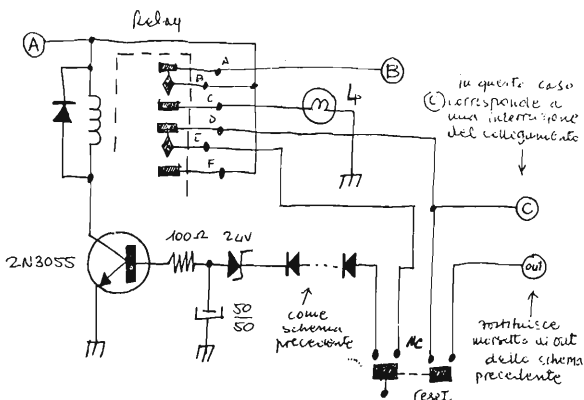 Relay
A
A
B
B
C
D
E
F
L
in questo caso
C corrisponde a
una interruzione
del collegamento
C
100Ω
24V
2N3055
50
50
come
schema
precedente
NC
out
sostituisce
morsetto di out
dello schema
precedente
reset